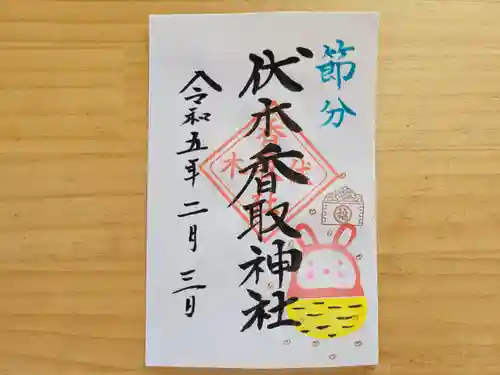 節分
伏木香取神社
令和五年二月三日
福